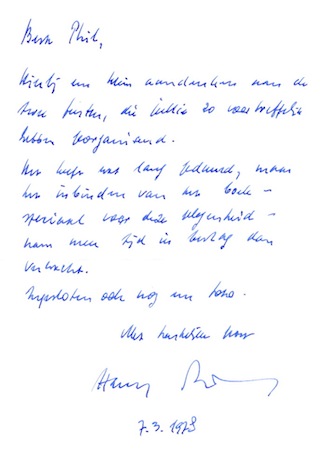 Beste Phil,
Hierbij een klein aandenken aan de
twee feesten, die jullie zo voortreffelijk
hebben georganiseerd.
Het heeft wat lang geduurd, maar
het inbinden van het boek -
speciaal voor deze gelegenheid -
nam meer tijd in beslag dan
verwacht.
Ingesloten ook nog een foto.
Met hartelijke groet
Harry
7.3.1978